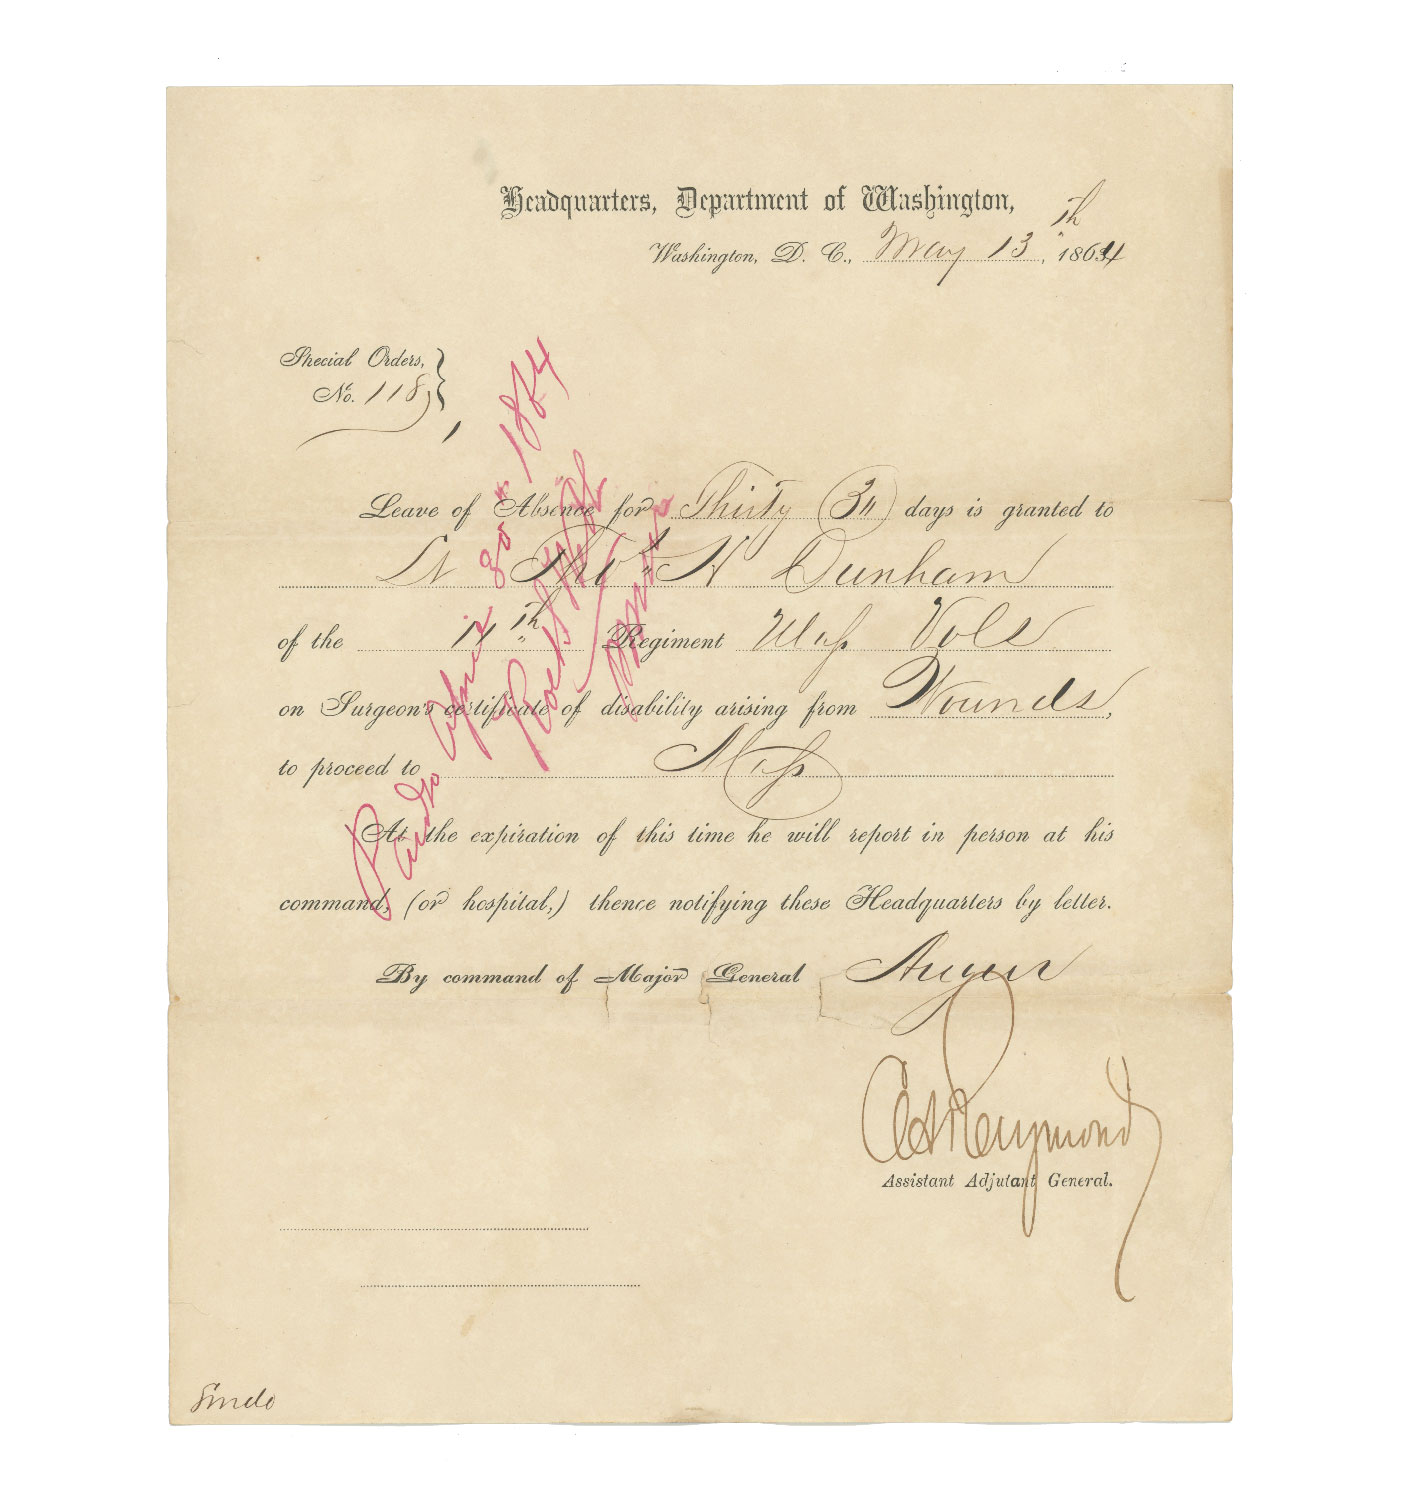 Headquarters, Department of Washington,
Washington, D. C., May 13th, 1864
Special Orders,
No. 118,
Leave of Absence for Thirty (30) days is granted to
Lt Tho's H Dunham
of the 11th Regiment Mass Vols
on Surgeon's certificate of disability arising from Wounds,
to proceed to Mass
At the expiration of this time he will report in person at his
command, (or hospital,) thence notifying these Headquarters by letter.
By command of Major General Augur
C H Raymond
Assistant Adjutant General.
Paid to April 30" 1864